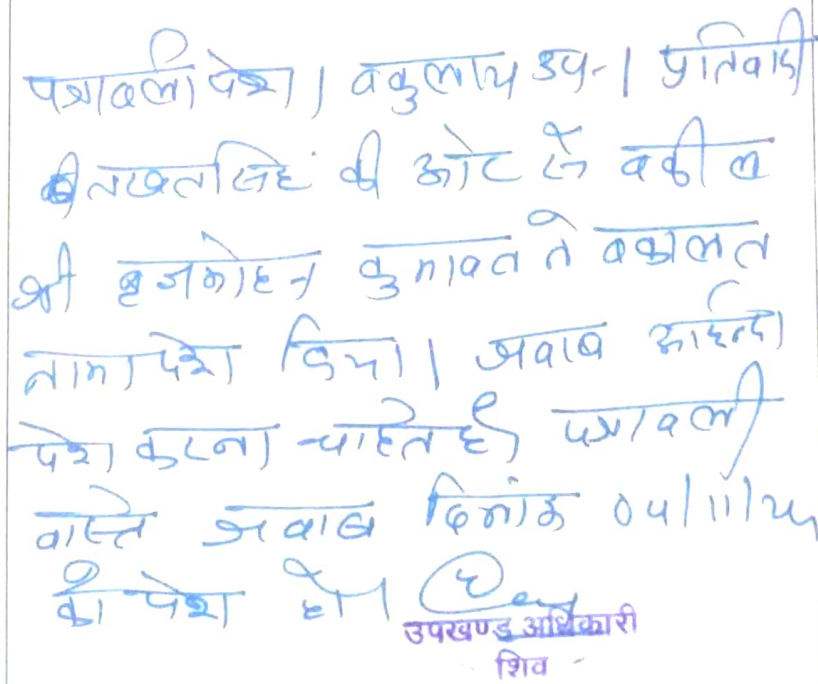 पत्रावली पेश। वकुलाय उप.। प्रतिवादी
तखतसिंह की ओर से वकील
श्री बृजमोहन कुमावत ने वकालत
नामा पेश किया। जवाब आईन्दा
पेश करना चाहते है। पत्रावली
वास्ते जवाब दिनांक 04/11/24
को पेश हो।
उपखण्ड अधिकारी
शिव